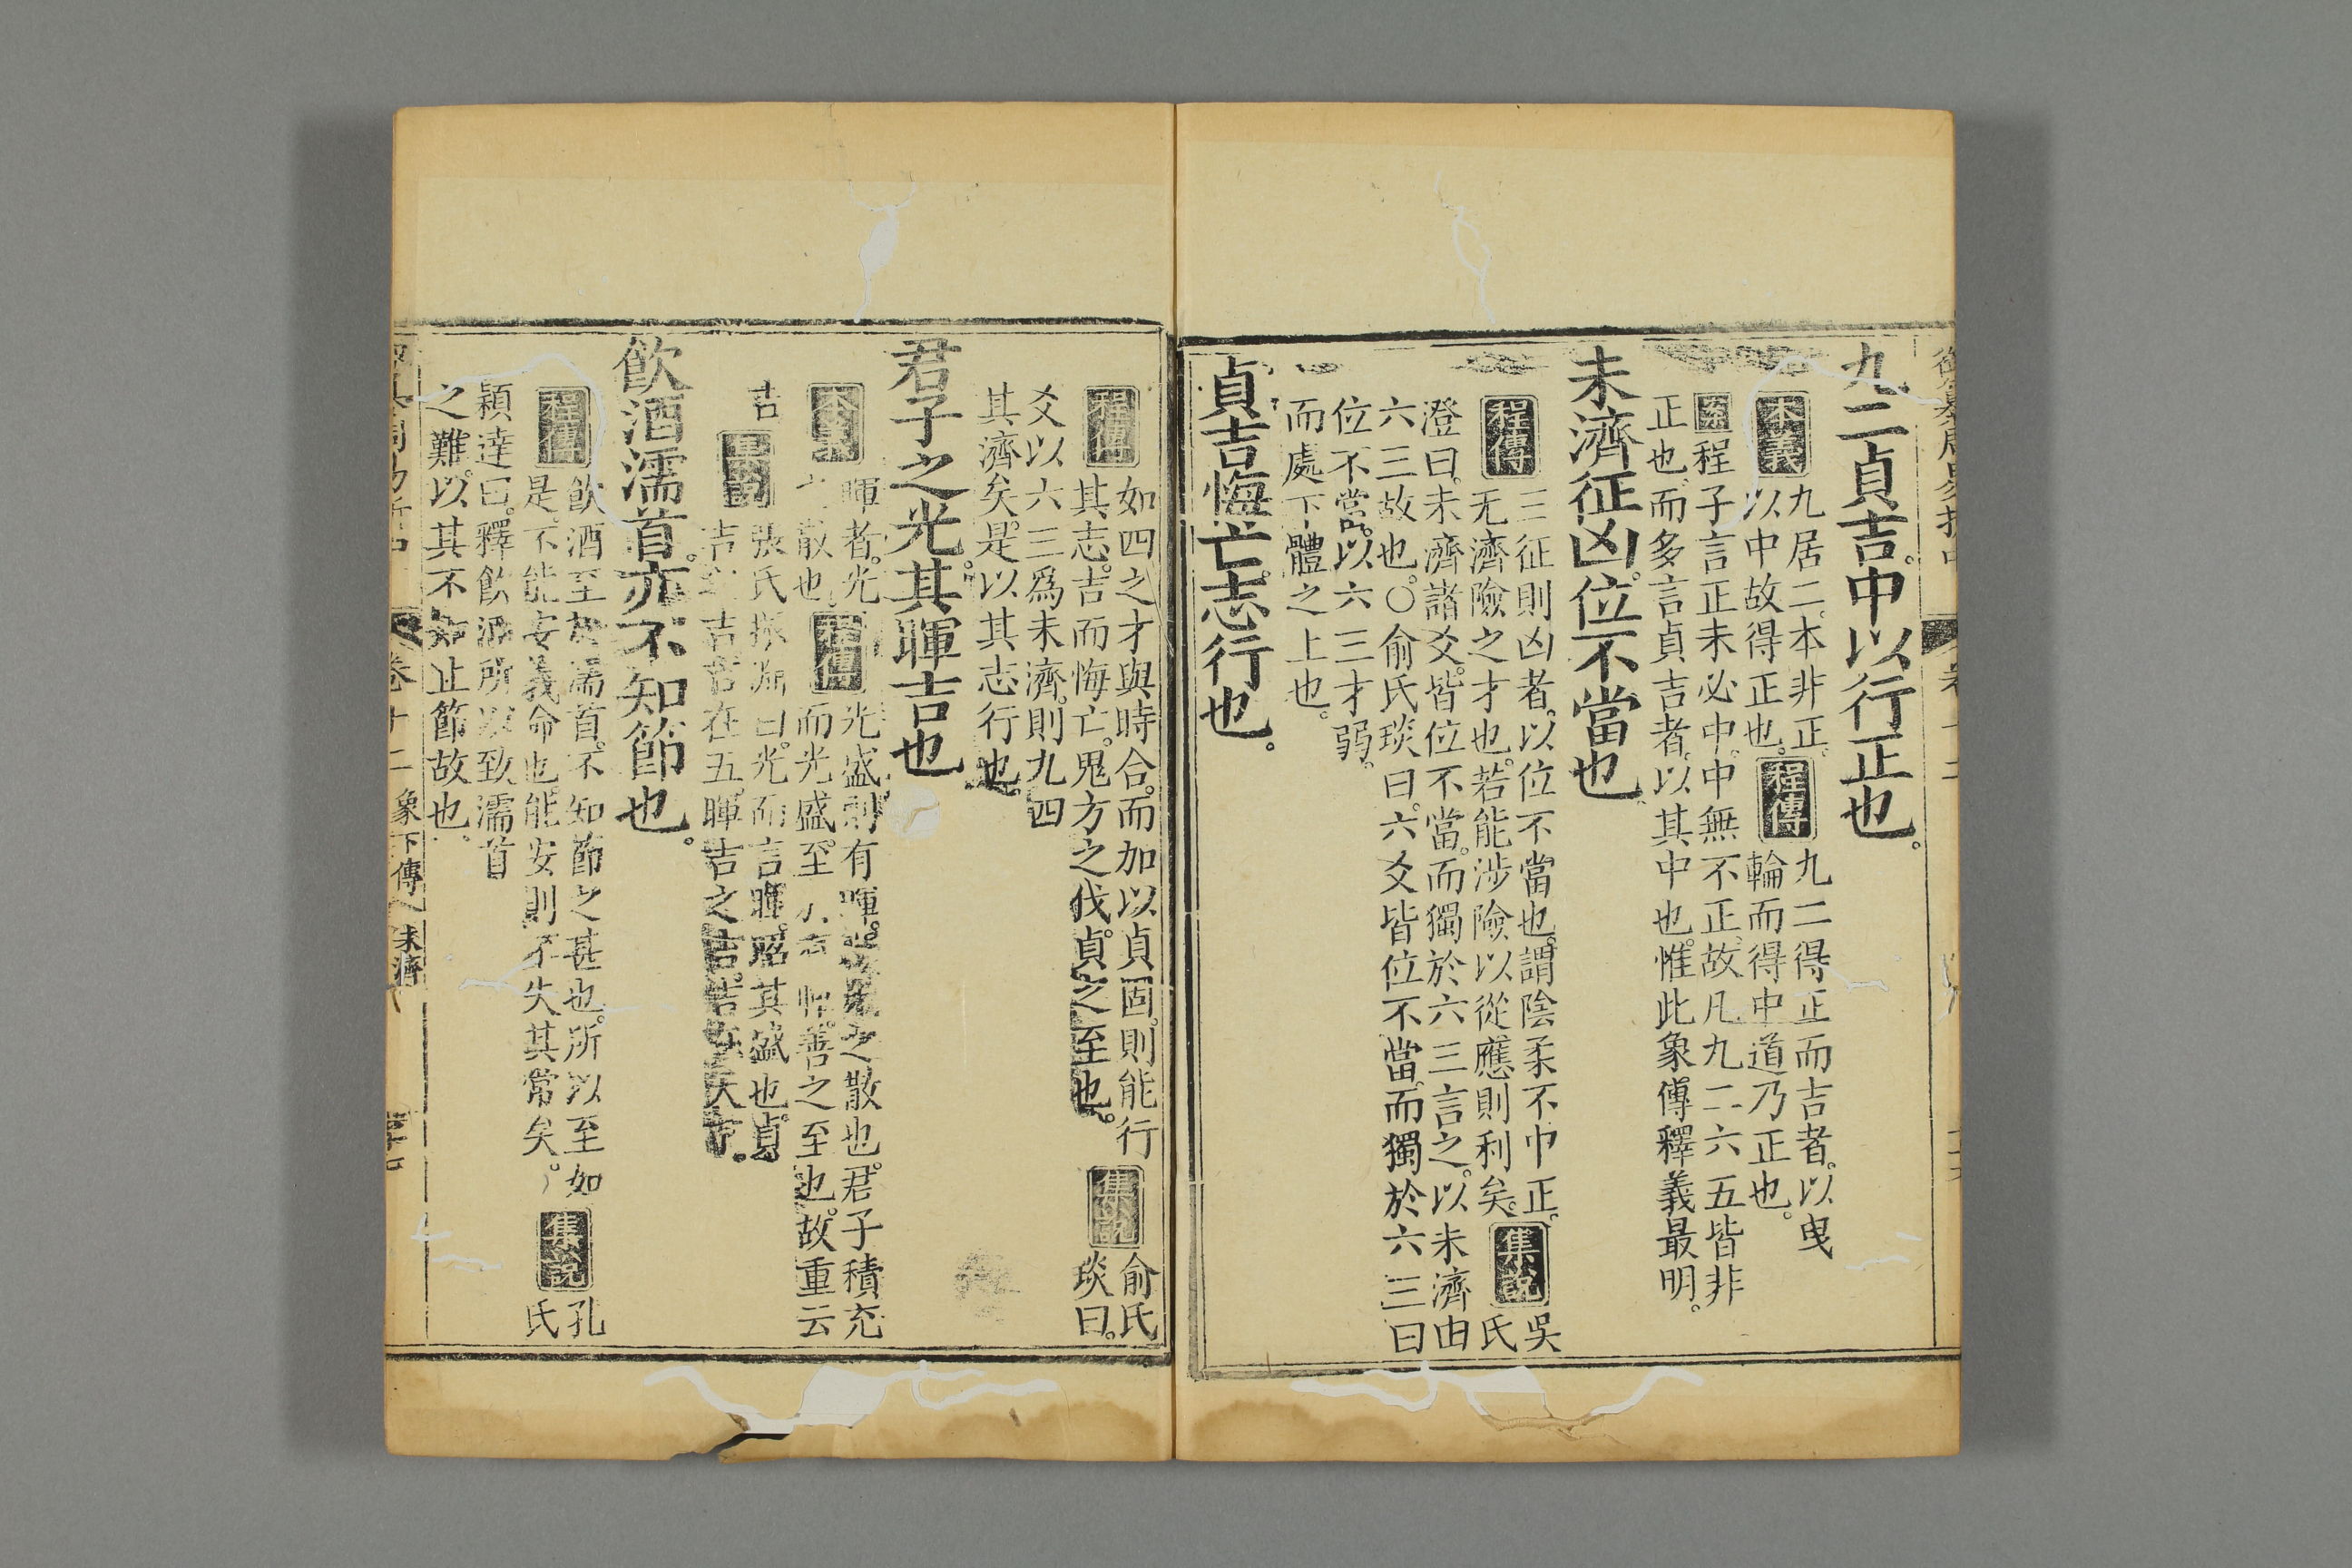 九二貞吉。中以行正也。
本義
九居二。本非正。
以中故得正也。
程傳
九二得正而吉者。以曳
輪而得中道乃正也。
案
程子言正未必中。中無不正。故凡九二六五皆非
正也。而多言貞吉者。以其中也。惟此象傳釋義最明。
未濟征凶。位不當也
程傳
三征則凶者。以位不當也。謂陰柔不中正。
无濟險之才也。若能涉險以從應則利矣。
集說
吳
氏
澄曰。未濟諸爻。皆位不當。而獨於六三言之。以未濟由
六三故也。○俞氏琰曰。六爻皆位不當。而獨於六三曰
位不當。以六三才弱。
而處下體之上也。
貞吉悔亡。志行也。
程傳
如四之才與時合。而加以貞固。則能行
其志。吉而悔亡。鬼方之伐。貞之至也。
集說
俞氏
琰曰。
爻以六三爲未濟。則九四
其濟矣。是以其志行也。
君子之光。其暉吉也
本義
暉者。光
之散也。
程傳
光盛則有暉。暉光之散也。君子積充
而光盛。至 善之至也。故重云
吉
集說
張氏振淵曰。光而言暉。昭其盛也。貞
吉 吉在五。暉吉之吉。吉在天下。
飲酒濡首。亦不知節也。
程傳
飲酒至於濡首。不知節之甚也。所以至如
是。不能安義命也。能安則不失其常矣。
集說
孔
氏
穎達曰。釋飲酒所以致濡首
之難。以其不知止節故也。
卷十二 象下傳 未濟